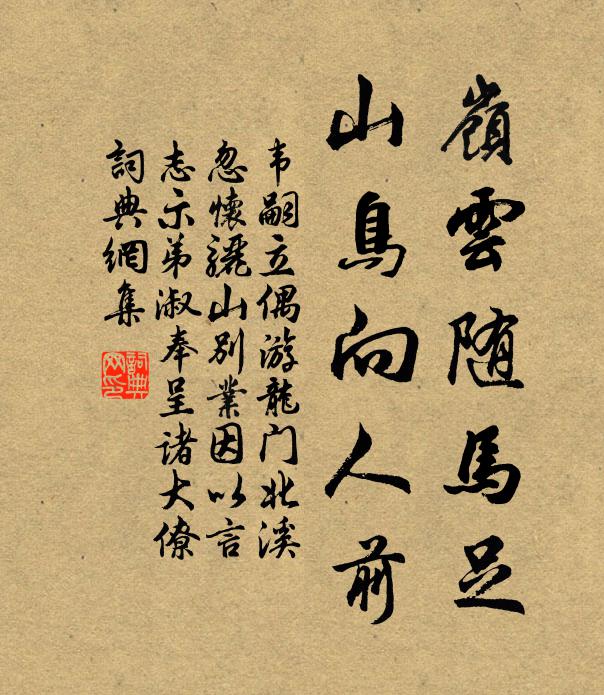 嶺雲随馬足
山鳥向人前
韦嗣立偶游龍门北溪
忽懷驪山別業因以言
志示弟淑奉呈诸大僚
詞典網集
詞典
网印